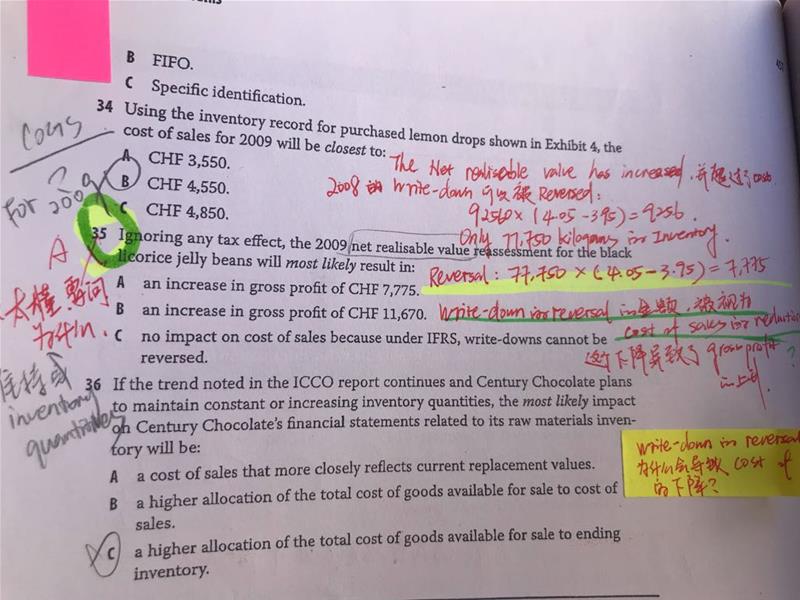 B FIFO.
C Specific identification.
34 Using the inventory record for purchased lemon drops shown in Exhibit 4, the
cost of sales for 2009 will be closest to:
A CHF 3,550.
B CHF 4,550.
C CHF 4,850.
COGS
For 2009
?
The Net realisable value has increased, 并超过了cost
2008 的 write-down 可以被 Reversed:
92560 × (4.05-3.95) = 9256.
Only 77,750 kilograms in Inventory.
35 Ignoring any tax effect, the 2009 net realisable value reassessment for the black
licorice jelly beans will most likely result in:
Reversal: 77,750 × (4.05-3.95) = 7,775
A an increase in gross profit of CHF 7,775.
B an increase in gross profit of CHF 11,670.
write-down in reversal 的金额, 被视为
C no impact on cost of sales because under IFRS, write-downs cannot be
reversed.
cost of sales in reduction
这个下降导致了 gross profit
的上升.
?
A
不太懂
为什么.
维持或
inventory
quantities
36 If the trend noted in the ICCO report continues and Century Chocolate plans
to maintain constant or increasing inventory quantities, the most likely impact
on Century Chocolate's financial statements related to its raw materials inven-
tory will be:
A a cost of sales that more closely reflects current replacement values.
B a higher allocation of the total cost of goods available for sale to cost of
sales.
C a higher allocation of the total cost of goods available for sale to ending
inventory.
write-down in reversal
为什么会导致 cost of
的下降?